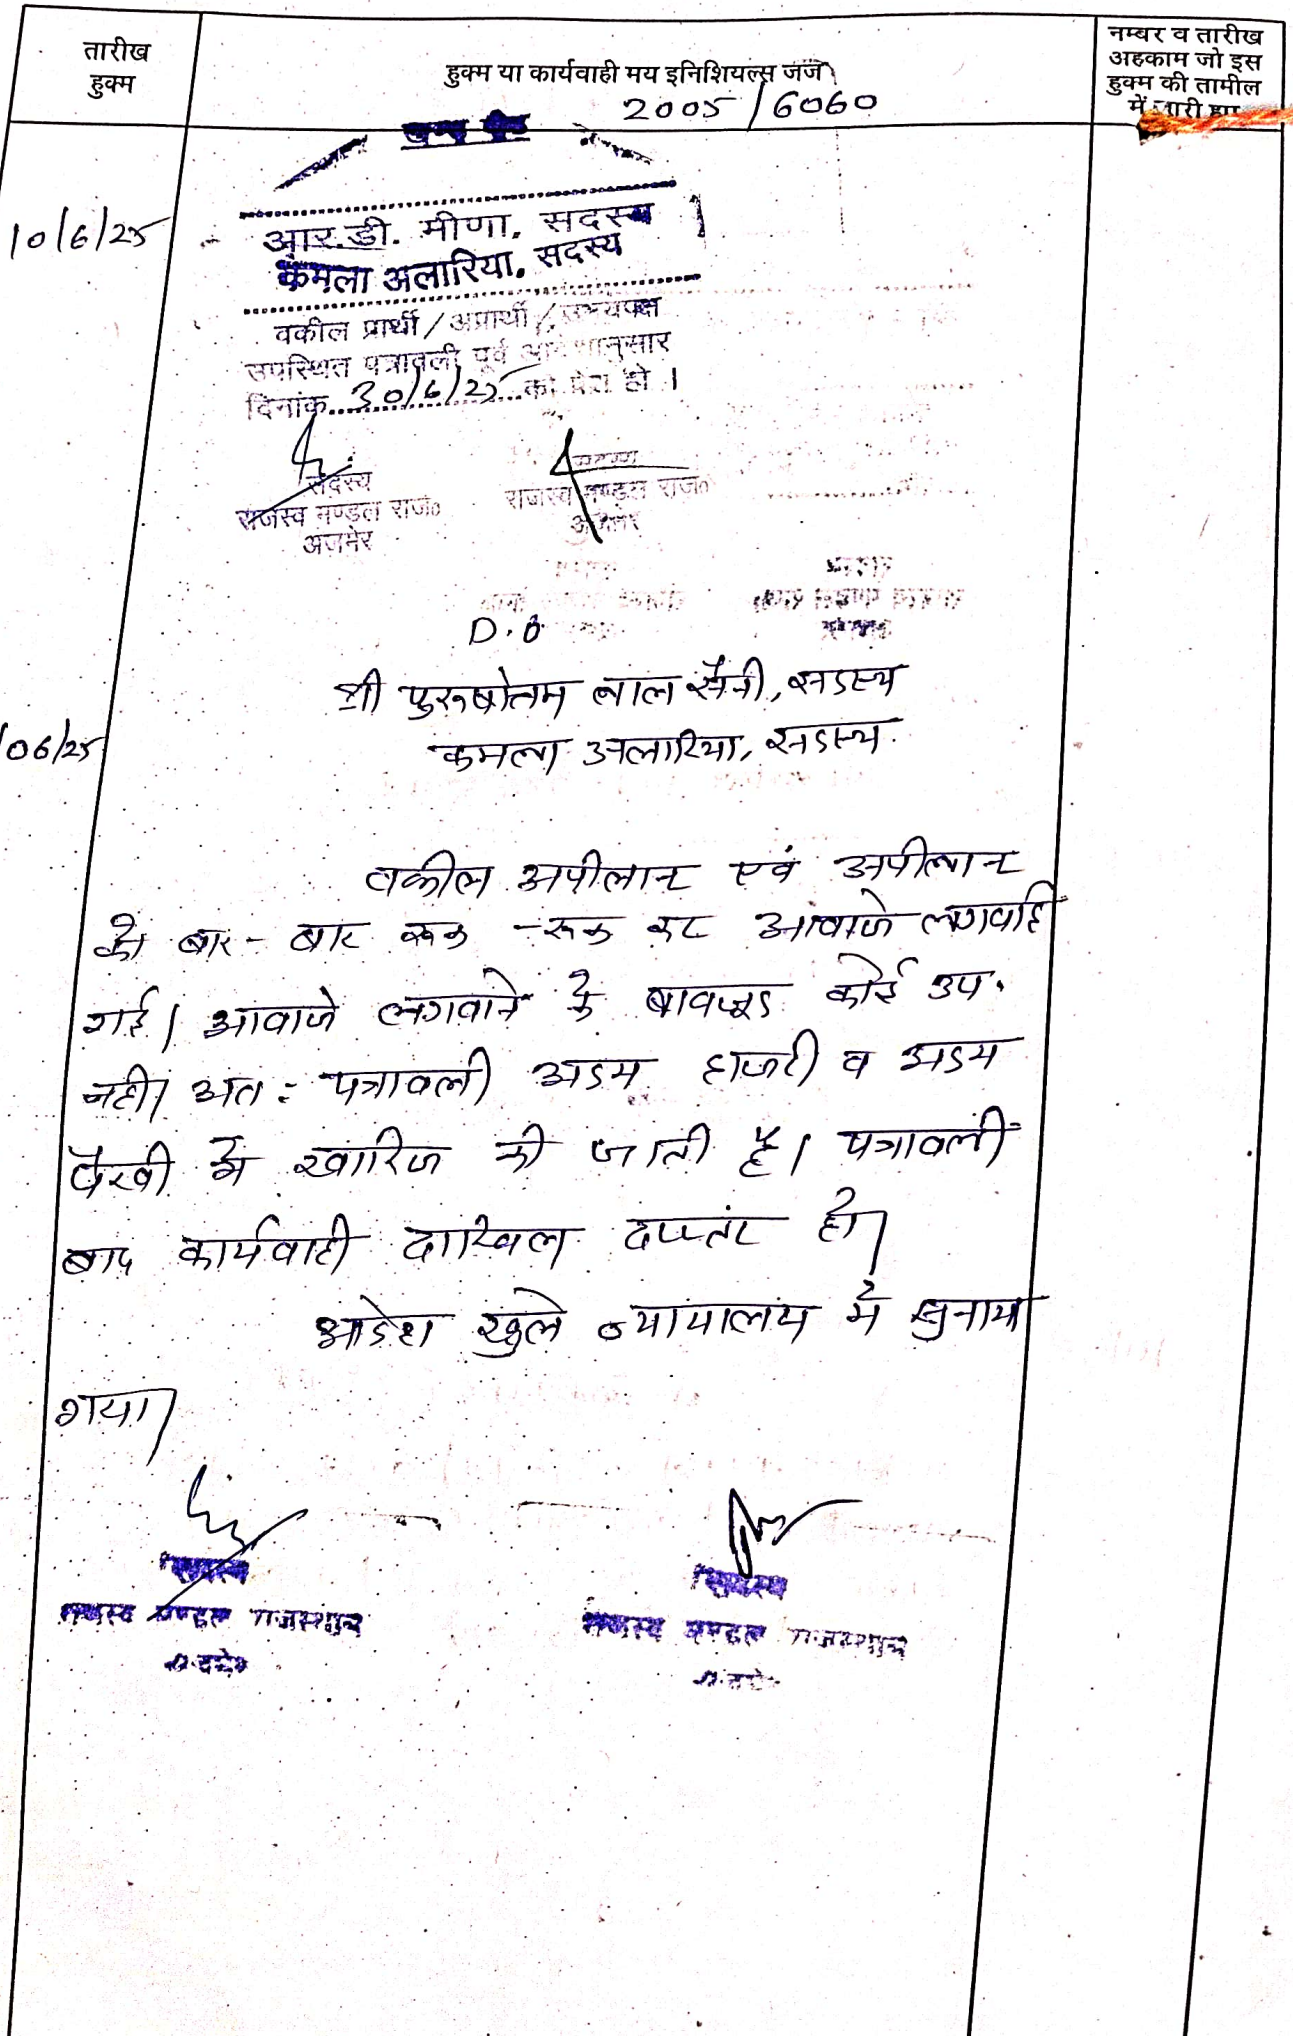 तारीख
हुक्म
हुक्म या कार्यवाही मय इनिशियल्स जज
2005/6060
नम्बर व तारीख
अहकाम जो इस
हुक्म की तामील
में जारी हुए
10/6/25
आर.डी. मीणा, सदस्य
कमला अलारिया, सदस्य
वकील प्रार्थी/अप्रार्थी/उभयपक्ष
उपस्थित पत्रावली पूर्व आदेशानुसार
दिनांक 30/6/25 को पेश हो।
सदस्य
राजस्व मण्डल राज०
अजमेर
सदस्य
राजस्व मण्डल राज०
अजमेर
D.B
/06/25
श्री पुरुषोतम लाल सैनी, सदस्य
कमला अलारिया, सदस्य
वकील अपीलान्ट एवं अपीलान्ट
को बार-बार रूक-रूक कर आवाजे लगवाई
गई। आवाजे लगवाने के बावजूद कोई उप.
नही। अतः पत्रावली अदम हाजरी व अदम
पैरवी में खारिज की जाती है। पत्रावली
बाद कार्यवाही दाखिल दफ्तर हो।
आदेश खुले न्यायालय में सुनाया
गया।
सदस्य
राजस्व मण्डल राजस्थान
सदस्य
राजस्व मण्डल राजस्थान